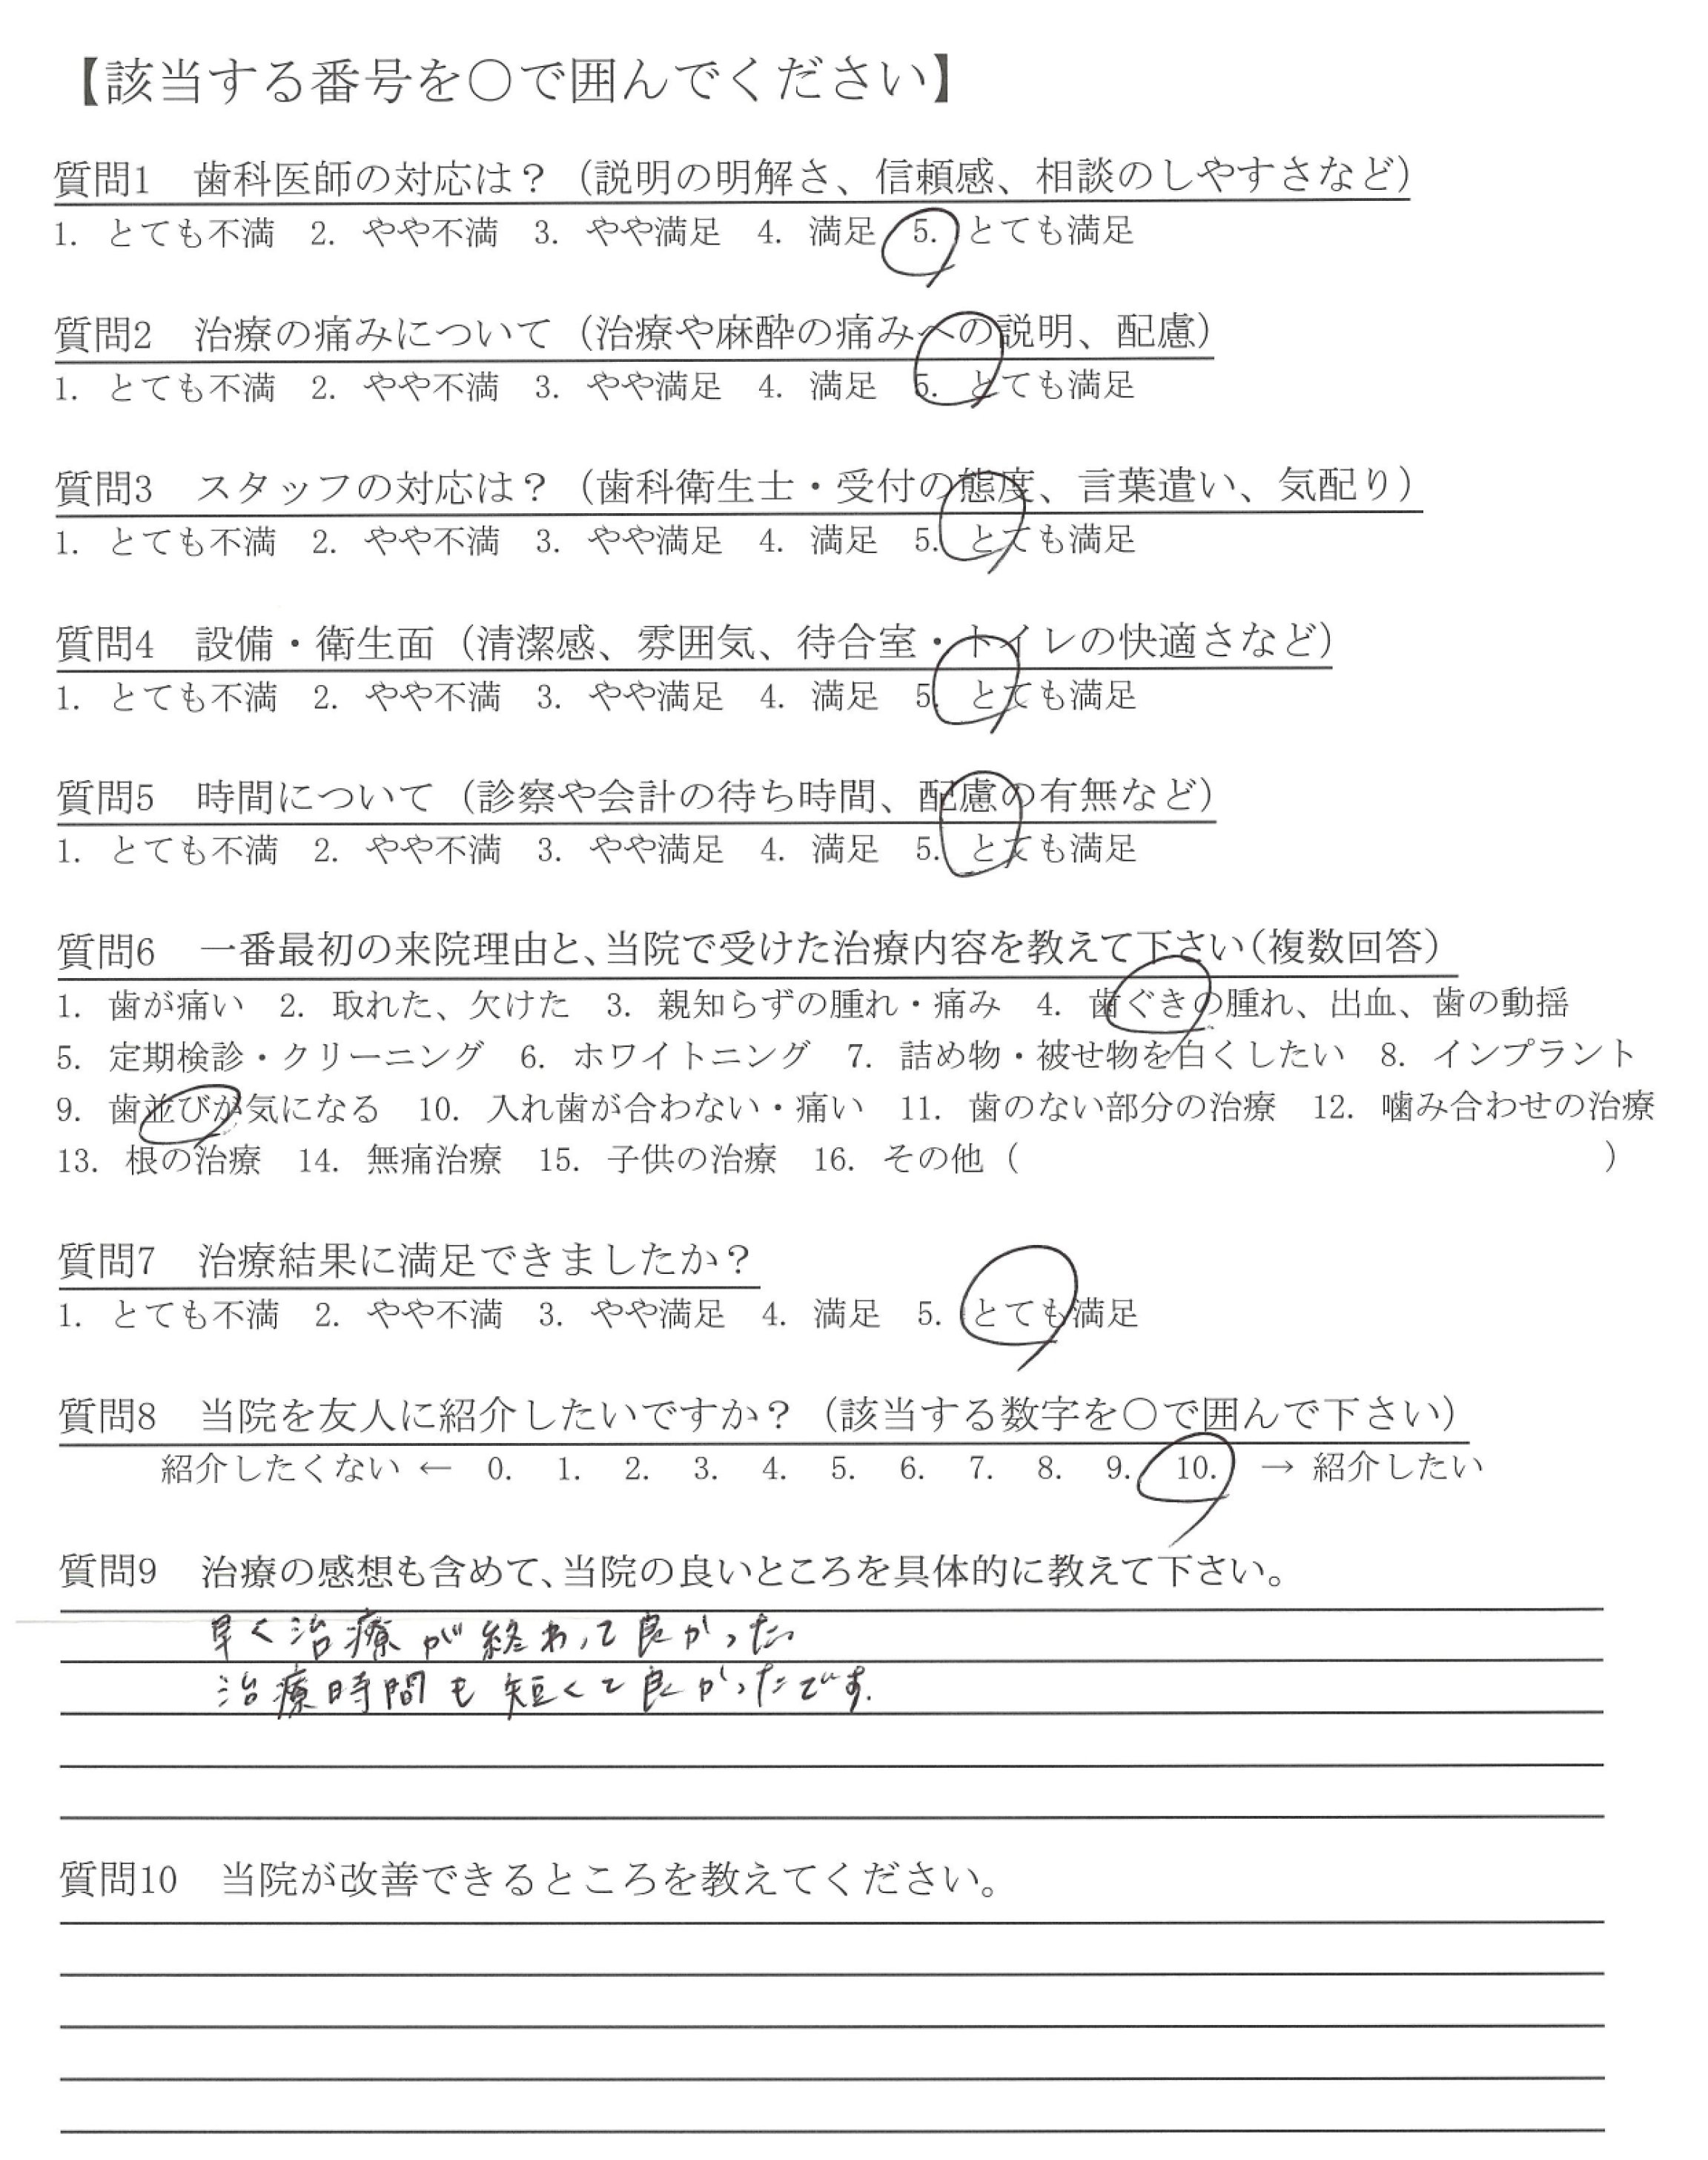 【該当する番号を○で囲んでください】
質問1　歯科医師の対応は？（説明の明解さ、信頼感、相談のしやすさなど）
1. とても不満　2. やや不満　3. やや満足　4. 満足　5. とても満足
質問2　治療の痛みについて（治療や麻酔の痛みへの説明、配慮）
1. とても不満　2. やや不満　3. やや満足　4. 満足　5. とても満足
質問3　スタッフの対応は？（歯科衛生士・受付の態度、言葉遣い、気配り）
1. とても不満　2. やや不満　3. やや満足　4. 満足　5. とても満足
質問4　設備・衛生面（清潔感、雰囲気、待合室・トイレの快適さなど）
1. とても不満　2. やや不満　3. やや満足　4. 満足　5. とても満足
質問5　時間について（診察や会計の待ち時間、配慮の有無など）
1. とても不満　2. やや不満　3. やや満足　4. 満足　5. とても満足
質問6　一番最初の来院理由と、当院で受けた治療内容を教えて下さい（複数回答）
1. 歯が痛い　2. 取れた、欠けた　3. 親知らずの腫れ・痛み　4. 歯ぐきの腫れ、出血、歯の動揺
5. 定期検診・クリーニング　6. ホワイトニング　7. 詰め物・被せ物を白くしたい　8. インプラント
9. 歯並びが気になる　10. 入れ歯が合わない・痛い　11. 歯のない部分の治療　12. 噛み合わせの治療
13. 根の治療　14. 無痛治療　15. 子供の治療　16. その他（　　　　　　　　　　　　　　　　　）
質問7　治療結果に満足できましたか？
1. とても不満　2. やや不満　3. やや満足　4. 満足　5. とても満足
質問8　当院を友人に紹介したいですか？（該当する数字を○で囲んで下さい）
紹介したくない ← 0.　1.　2.　3.　4.　5.　6.　7.　8.　9.　10.　→ 紹介したい
質問9　治療の感想も含めて、当院の良いところを具体的に教えて下さい。
早く治療が終わって良かった。
治療時間も短くて良かったです.
質問10　当院が改善できるところを教えてください。